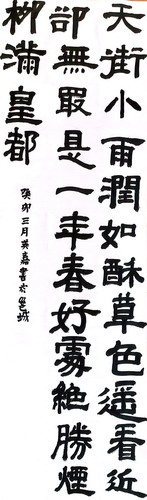 天街小雨潤如酥草色遥看近
卻無最是一年春好處絶勝煙
柳滿皇都
癸卯三月英嘉書於邑城